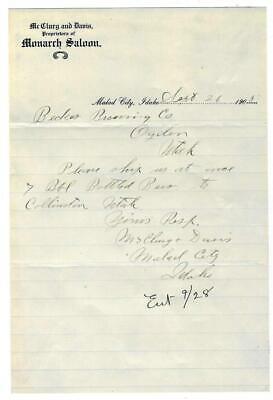 McClurg and Davis,
Proprietors of
Monarch Saloon.
Malad City, Idaho, Sept 26 190
Becker Brewing Co
Ogden
Utah
Please ship us at once
7 Bbl Bottled Beer to
Collinston Utah
Yours Resp.
McClurg & Davis
Malad City
Idaho
Ent 9/28